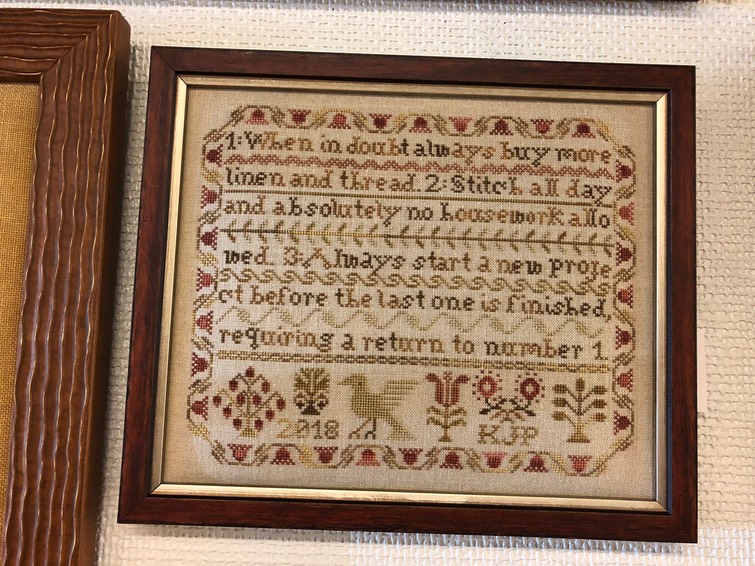 1: When in doubt always buy more
linen and thread. 2: Stitch all day
and absolutely no housework allo
wed. 3: Always start a new proje
ct before the last one is finished,
requiring a return to number 1
2018
KJP